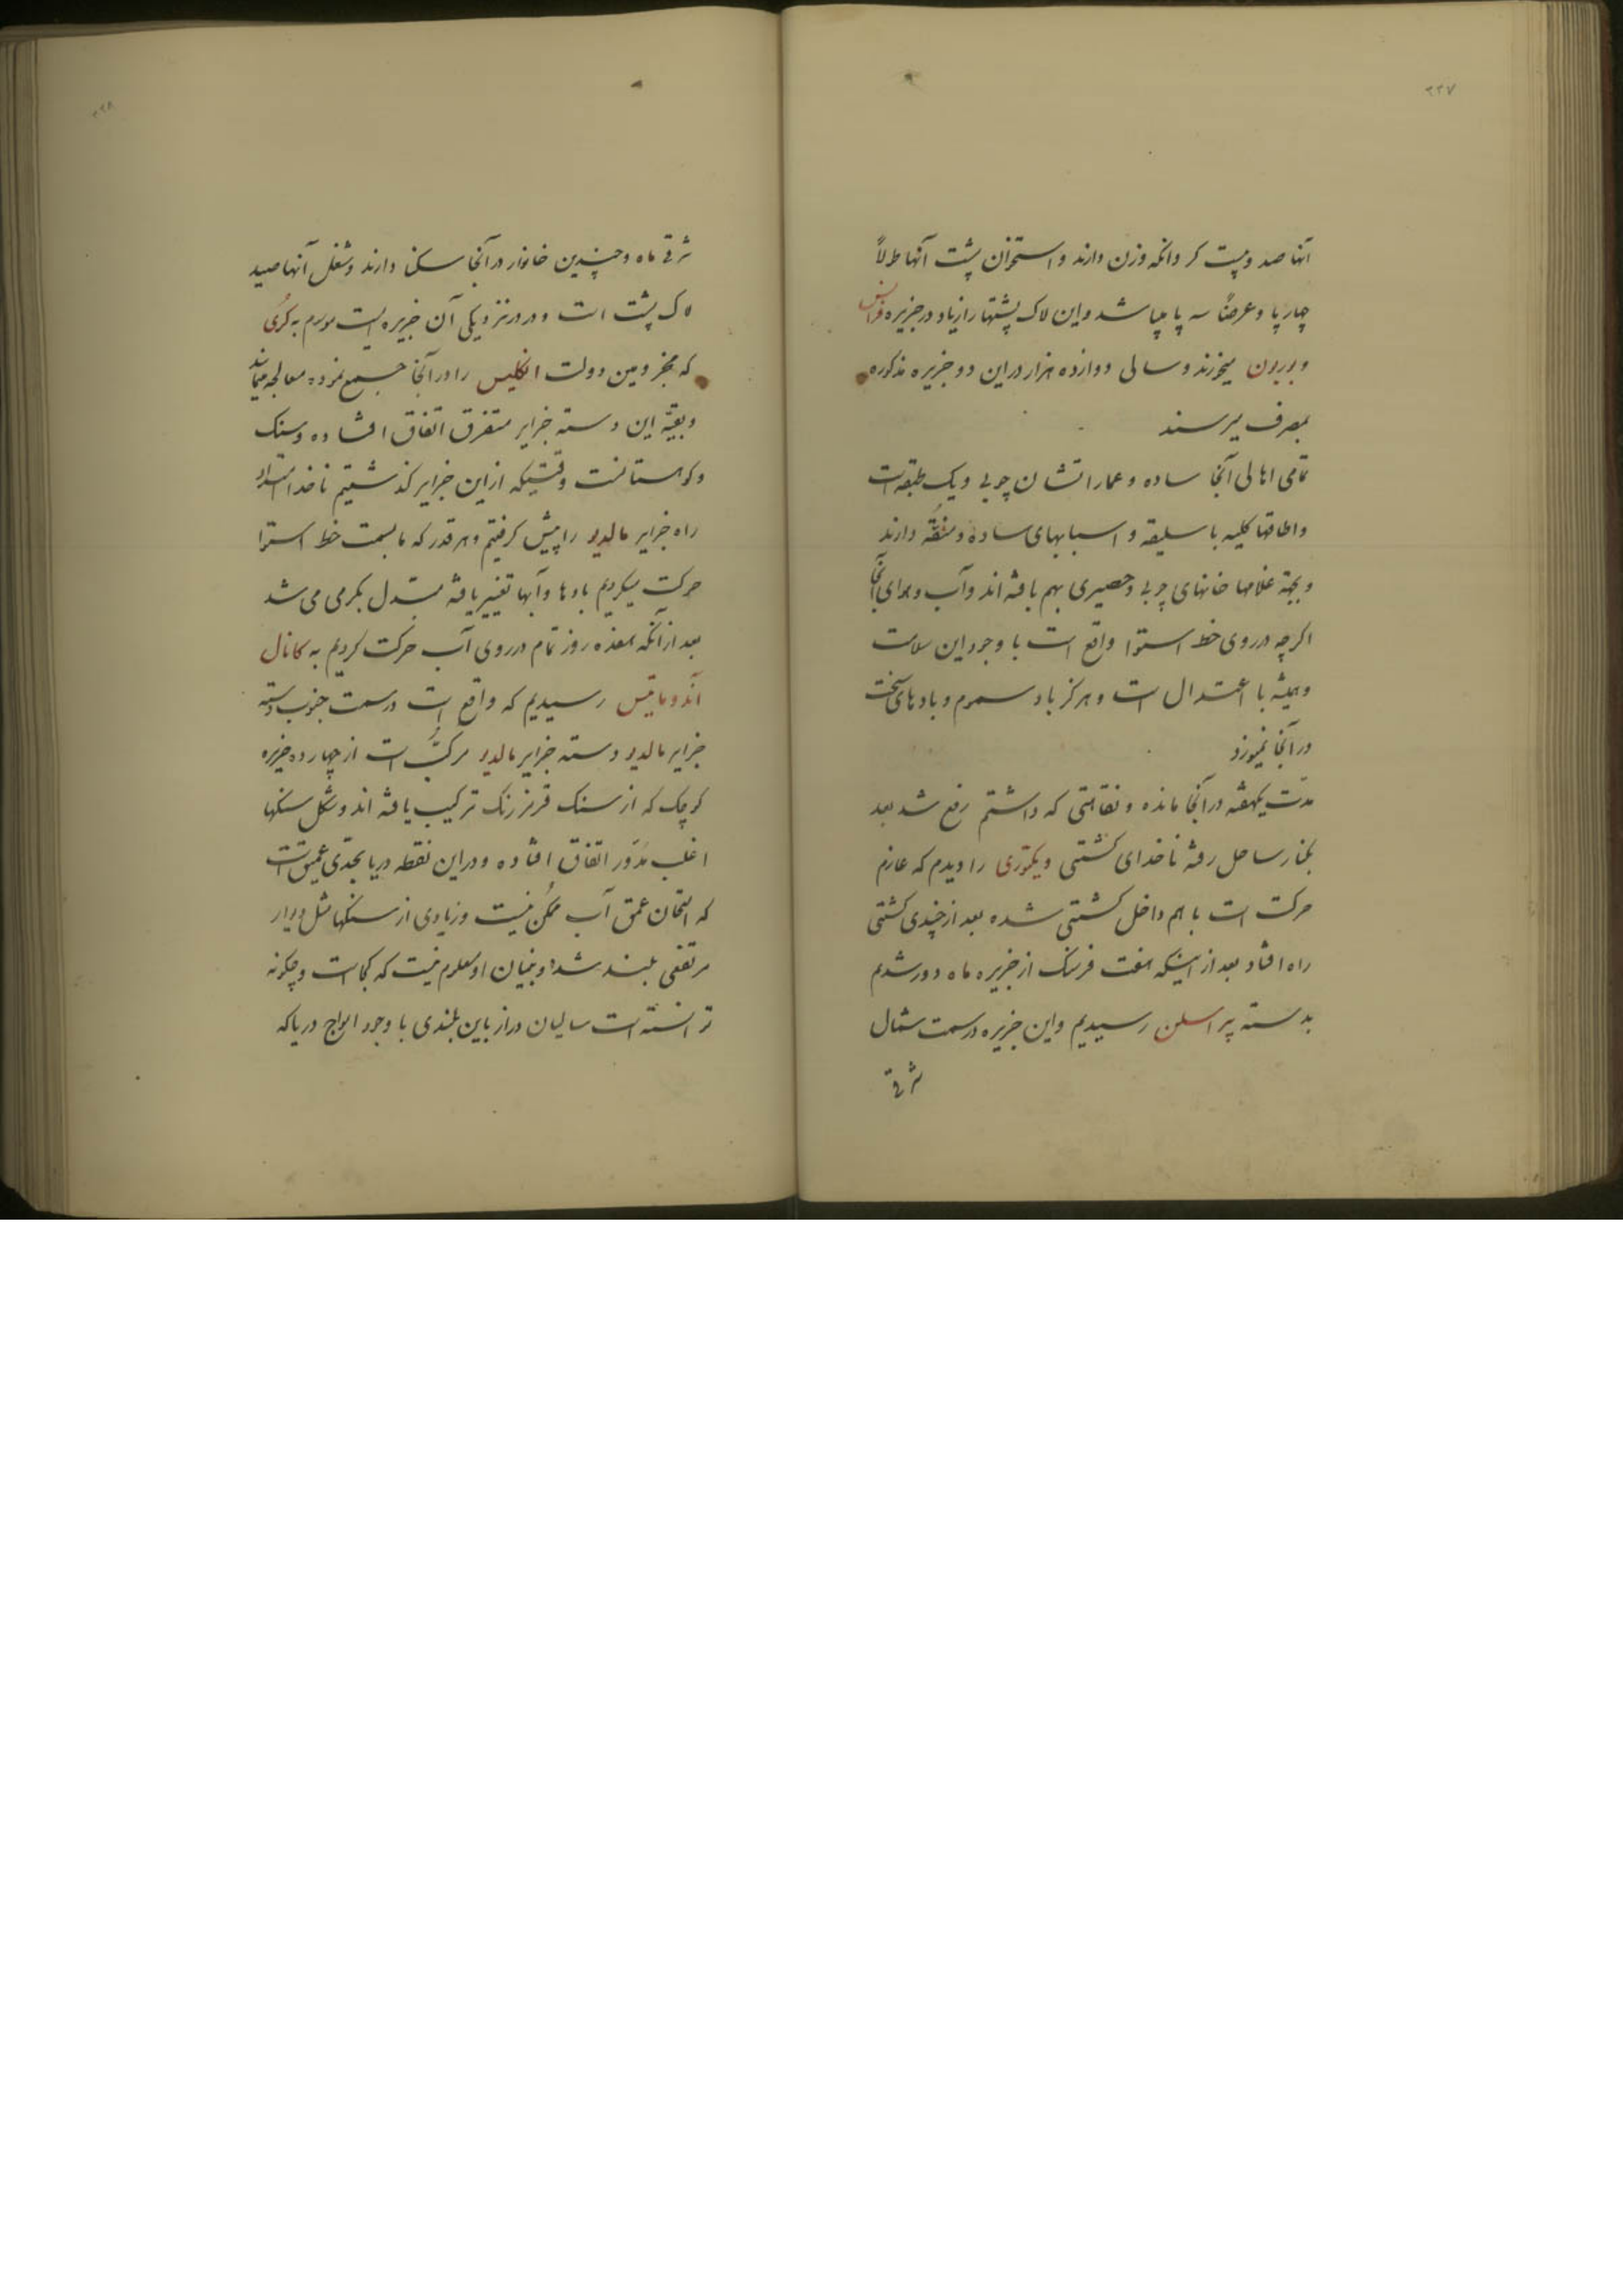 ۲۲۷
آنها صد و بیست کروانکه وزن دارند و استخوان پشت آنها طولاً
چهار پا و عرضاً سه پا میباشد و این لاک پشتها را زیاد در جزیره فرانس
و بوربون میخورند و سالی دوازده هزار در این دو جزیره مذکوره
بمصرف میرسند
تمامی اهالی آنجا ساده و عماراتشان چوبی و یک طبقه است
و اطاقها کلیه با سلیقه و اسبابهای ساده و منقّه دارند
و بجهة غلامها خانهای چوبی و حصیری بهم بافته اند و آب و هوای آنجا
اکرچه در روی خط استوا واقع است با وجود این سلامت
و همیشه با اعتدال است و هرکز باد سموم و بادهای سخت
در آنجا نمیوزد
مدت یکهفته در آنجا مانده و نقاهتی که داشتم رفع شد بعد
بکنار ساحل رفته ناخدای کشتی ویکتوری را دیدم که عازم
حرکت است با هم داخل کشتی شده بعد از چندی کشتی
راه افتاد بعد از اینکه هفت فرسنک از جزیره ماه دور شدیم
بدسته پر اسلن رسیدیم و این جزیره در سمت شمال
شرقی
۲۲۸
شرقی ماه و چندین خانوار در آنجا سکنا دارند و شغل آنها صید
لاک پشت است و در نزدیکی آن جزیره ایست موسوم به کری
که مجزومین دولت انکلیس را در آنجا جمع نموده معالجه مینمایند
و بقیّه این دسته جزایر متفرق اتفاق افتاده و سنک
و کوهستانست وقتیکه از این جزایر کذشتیم ناخدا
راه جزایر مالدیو را پیش کرفتیم و هر قدر که ما بسمت خط استوا
حرکت میکردیم بادها و آبها تغییر یافته مبدل بکرمی می شد
بعد از آنکه هفده روز تمام در روی آب حرکت کردیم به کانال
آندوماتیس رسیدیم که واقع است در سمت جنوب دسته
جزایر مالدیو دسته جزایر مالدیو مرکّب است از چهارده جزیره
کوچک که از سنک قرمز رنک ترکیب یافته اند و شکل سنکها
اغلب مدّور اتفاق افتاده و در این نقطه دریا بحدّی عمیق است
که امتحان عمق آب ممکن نیست و زیادی از سنکها مثل دیوار
مرتفعی بلند شده و بنیان او معلوم نیست که کجاست و چکونه
توانسته است سالیان دراز باین بلندی با وجود امواج دریا که